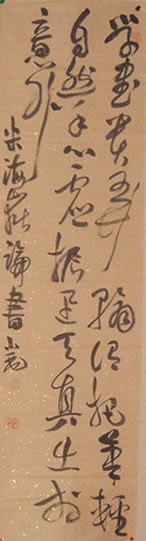 學書貴弄翰謂把筆輕
自然手心虛振迅天真出於
意外
米海嶽論書